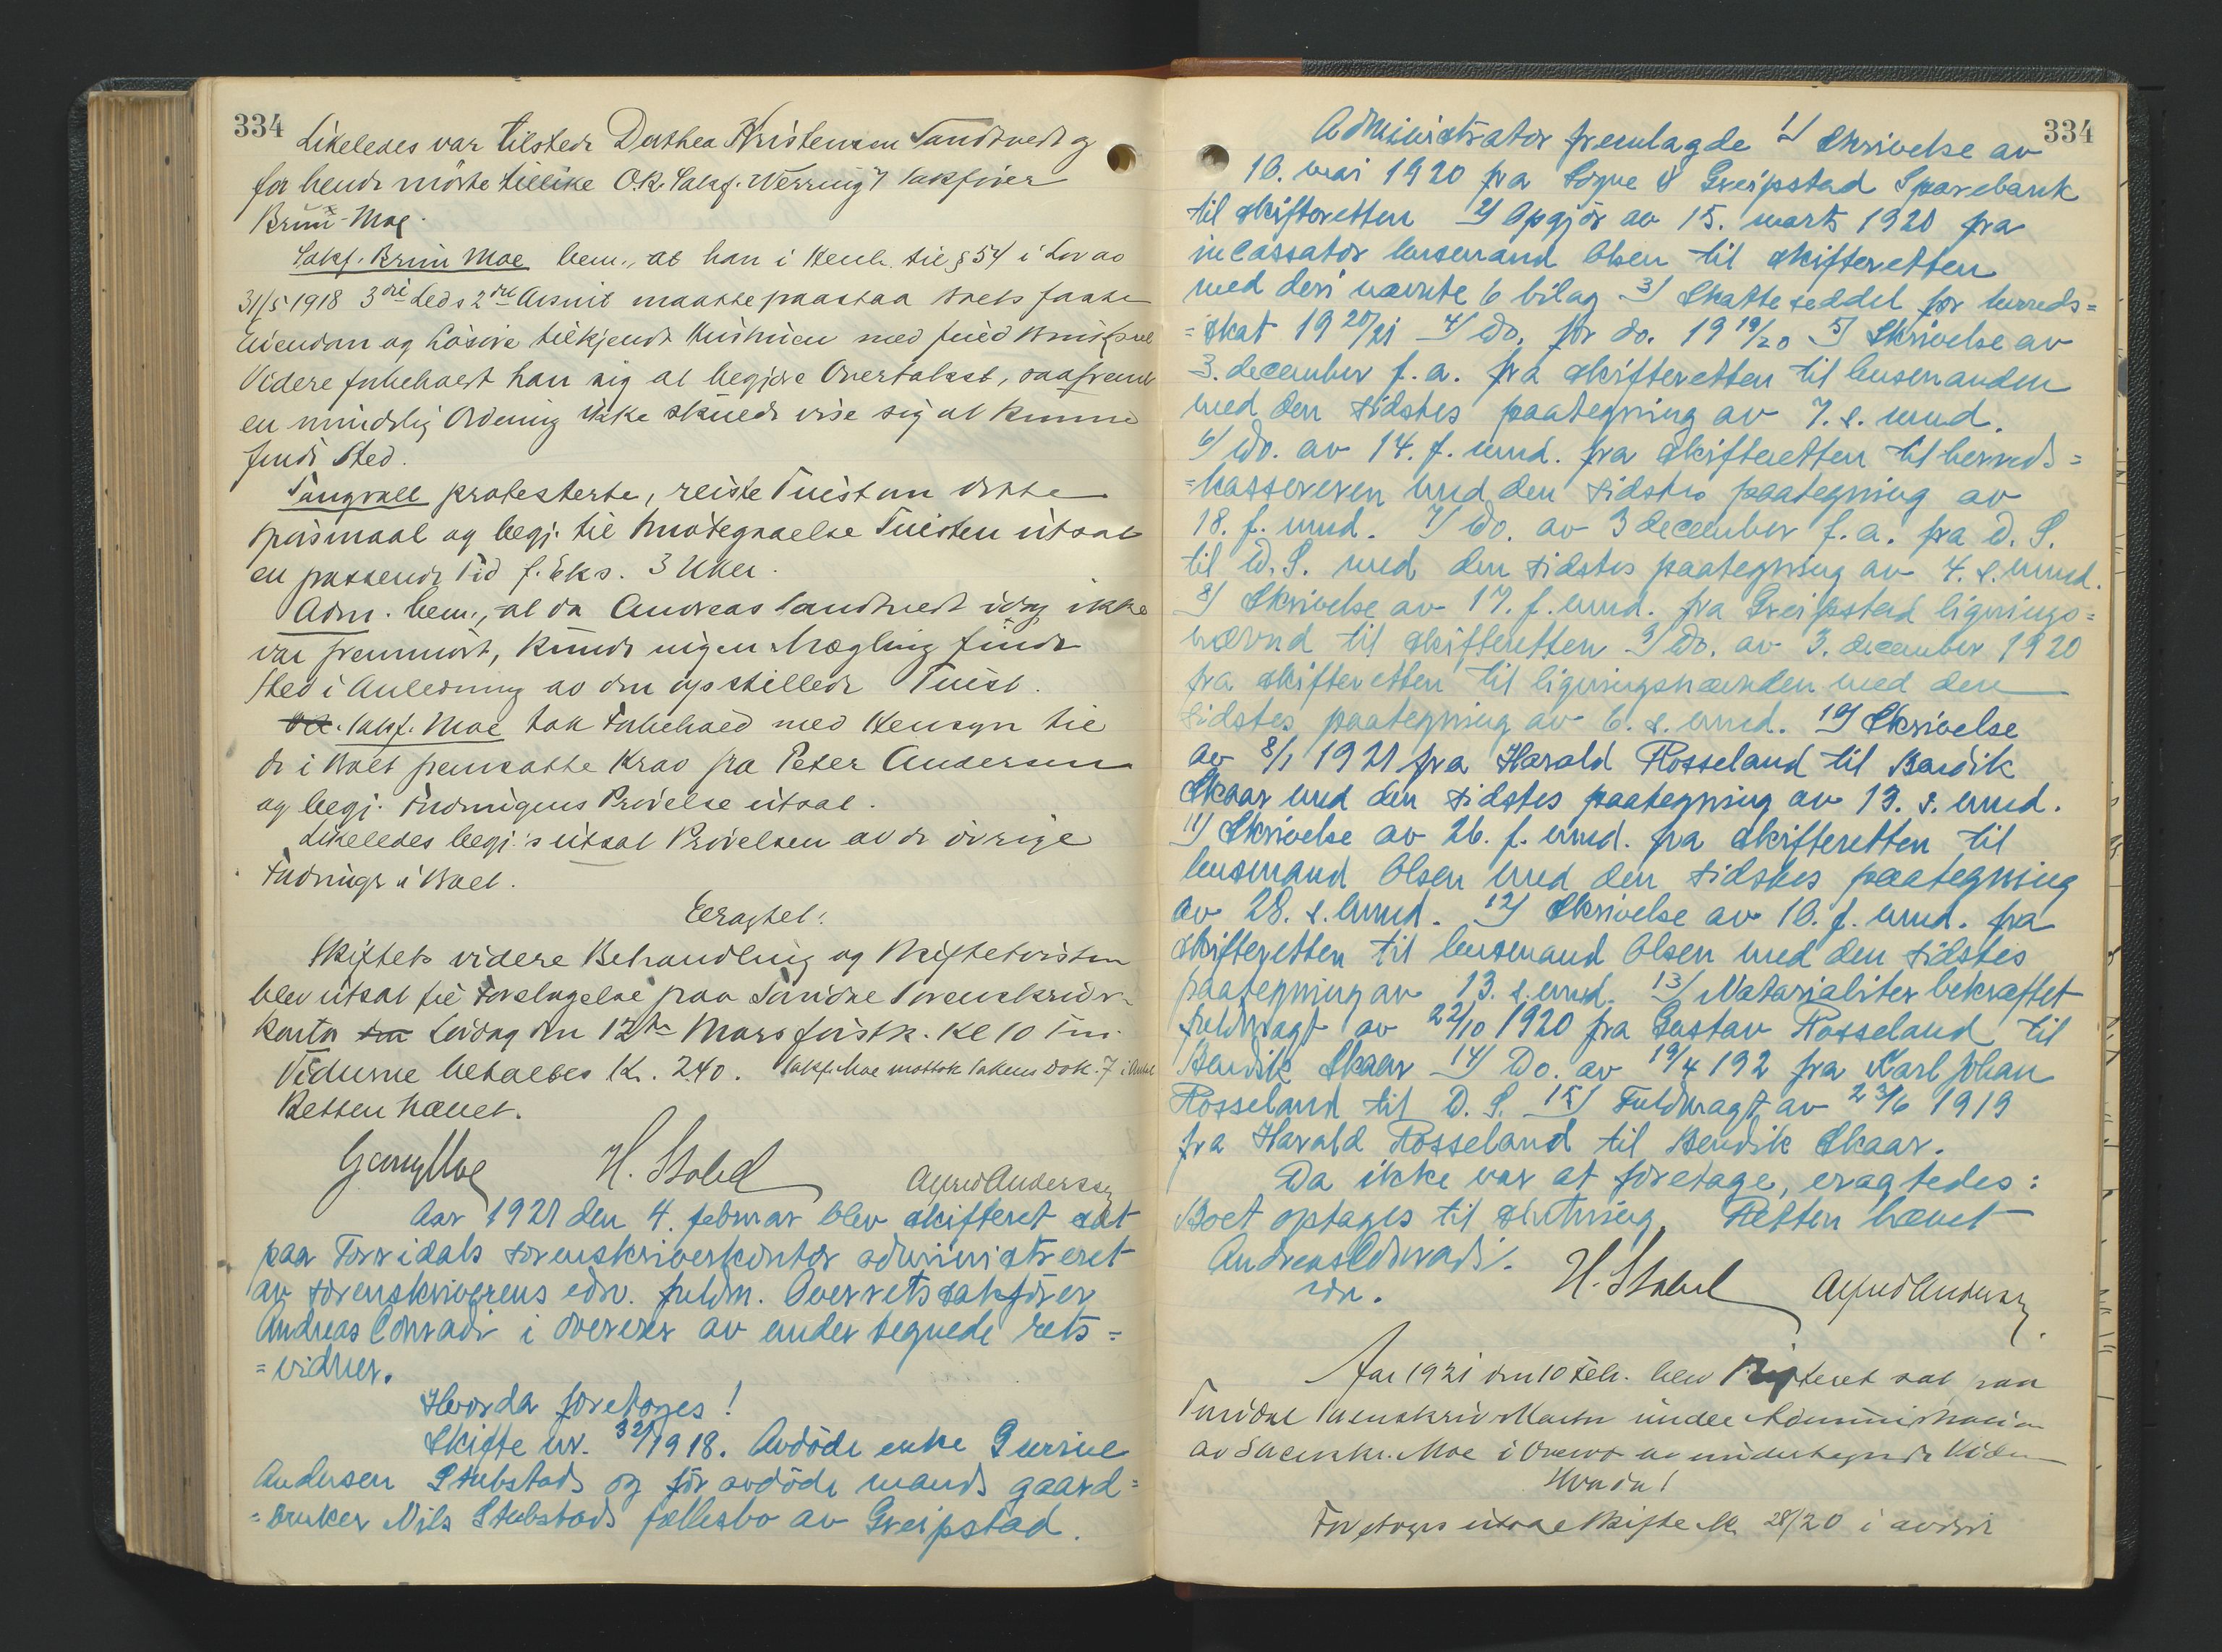 334
Likeledes var tilstede Dorthea Kristensen Sandtvedt og
for hende møtte tillike O.R.Sakf. Werring's sakfører
Bruu-Moe.
Sakf. Bruu Moe bem., at han i Henh. til § 54 i Lov av
31/5 1918 3die Leds 2det Avsnit maatte paastaa boets faste
Eiendom og Løsøre tilkjendt Hustruen med fuld
Videre forbeholdt han sig at begjære Overtakst, saafremt
en mindelig Ordning ikke skulde vise sig at kunne
finde Sted.
Tangvall protesterte, reiste Tvist om dette
spørsmaal og begj. til Imøtegaaelse Tvisten utsat
en passende Tid f. Eks. 3 Uker.
Adm. bem., at da Andreas Sandtvedt idag ikke
var fremmøtt, kunde ingen Mægling finde
Sted i Anledning av den opstillede Tvist.
Sakf. Moe tok Forbehold med Hensyn til
de i boet fremsatte Krav fra Peter Andersen
og begj. Fordringens Prøvelse utsat.
Likeledes begj.'s utsat Prøvelsen av de øvrige
Fordringer i boet.
Eragtet:
Skiftets videre Behandling og Skiftetvisten
blev utsat til Foretagelse paa Torridal Sorenskriver-
kontor Lørdag den 12te Mars førstk. Kl 10 Fm.
Vidnerne betaltes Kr. 2.40. Sakf. Moe mottok Sakens Dok. 7 i Antal
Retten hævet.
H. Stabel Alfred Andersen
Aar 1921 den 4. februar blev skifteret sat
paa Torridals sorenskriverkontor administreret
av sorenskriverens edsv. fuldm. Overretssakfører
Andreas Conradi i overvær av undertegnede rets=
=vidner.
Hvorda foretoges!
Skifte nr. 32/1918. Avdøde enke Gurine
Andersen Stubstads og før avdøde mands gaard=
=bruker Nils Stubstads fællesbo av Greipstad.
334
Administrator fremlagde 1/ Skrivelse av
10. mai 1920 fra Søgne & Greipstad Sparebank
til skifteretten 2/ Opgjør av 15. marts 1920 fra
incassator lensmand Olsen til skifteretten
med deri nævnte 6 bilag 3/ Skatteseddel for herreds=
=skat 1920/21 4/ Do. for do. 1919/20 5/ Skrivelse av
3. december f. a. fra skifteretten til lensmanden
med den sidstes paategning av 7. s. mnd.
6/ Do. av 14. f. mnd. fra skifteretten til herreds=
=kassereren med den sidstes paategning av
18. f. mnd. 7/ Do. av 3 december f. a. fra D. S.
til D. S. med den sidstes paategning av 4. s. mnd.
8/ Skrivelse av 17. f. mnd. fra Greipstad lignings=
nævnd til skifteretten 9/ Do. av 3. december 1920
fra skifteretten til ligningsnævnden med den
sidstes paategning av 6. s. mnd. 10/ Skrivelse
av 8/1 1921 fra Harald Rosseland til Bendik
Skaar med den sidstes paategning av 13. s. mnd.
11/ Skrivelse av 26. f. mnd. fra skifteretten til
lensmand Olsen med den sidstes paategning
av 28. s. mnd. 12/ Skrivelse av 10. f. mnd. fra
skifteretten til lensmand Olsen med den sidstes
paategning av 13. s. mnd. 13/ Notarialiter bekræftet
fuldmagt av 22/10 1920 fra Gustav Rosseland til
Bendik Skaar 14/ Do. av 19/4 192 fra Karl Johan
Rosseland til D. S. 15/ Fuldmagt av 23/6 1919
fra Harald Rosseland til Bendik Skaar.
Da ikke var at foretage, eragtedes:
Boet optages til slutning. Retten hævet
Andreas Conradi.
H. Stabel Alfred Andersen
Aar 1921 den 10 Feb. blev skifteret sat paa
Torridal Sorenskriverkontor under Administration
av Sorenskr. Moe i Overvær av undertegnede Vidner
Hvorda!
Foretoges utsat Skifte No. 28/20 i avdøde